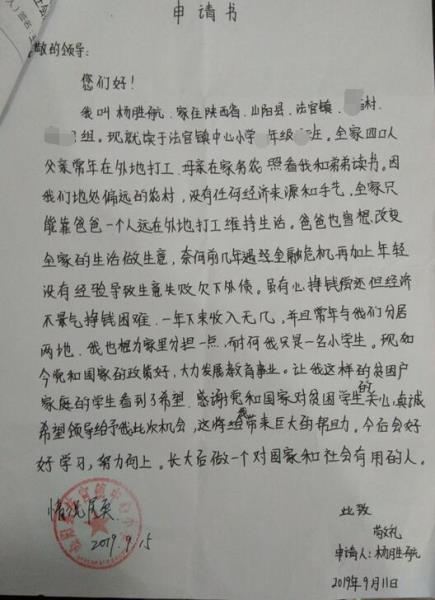 申请书
敬的领导:
您们好!
我叫杨胜航,家住陕西省,山阳县,法官镇,村
组。现就读于法官镇中心小学年级班。全家四口人
父亲常年在外地打工,母亲在家务农,照看我和弟弟读书。因
我们地处偏远的农村,没有任何经济来源和手艺,全家只
能靠爸爸一个人远在外地打工维持生活。爸爸也曾想改变
全家的生活做生意,奈何前几年遇经金融危机,再加上年轻
没有经验导致生意失败欠下外债。虽有心挣钱偿还但经济
不景气挣钱困难,一年下来收入无几,并且常年与我们分居
两地,我也想为家里分担一点,耐何我只是一名小学生。现如
今党和国家的政策好,大力发展教育事业。让我这样的贫困户
家庭的学生看到了希望,感谢党和国家对贫困学生的关心,真诚
希望领导给予我此次机会,这将给我带来巨大的帮助。今后会好
好学习,努力向上。长大后做一个对国家和社会有用的人。
情况属实
2019.9.15
此致
敬礼
申请人:杨胜航
2019年9月11日